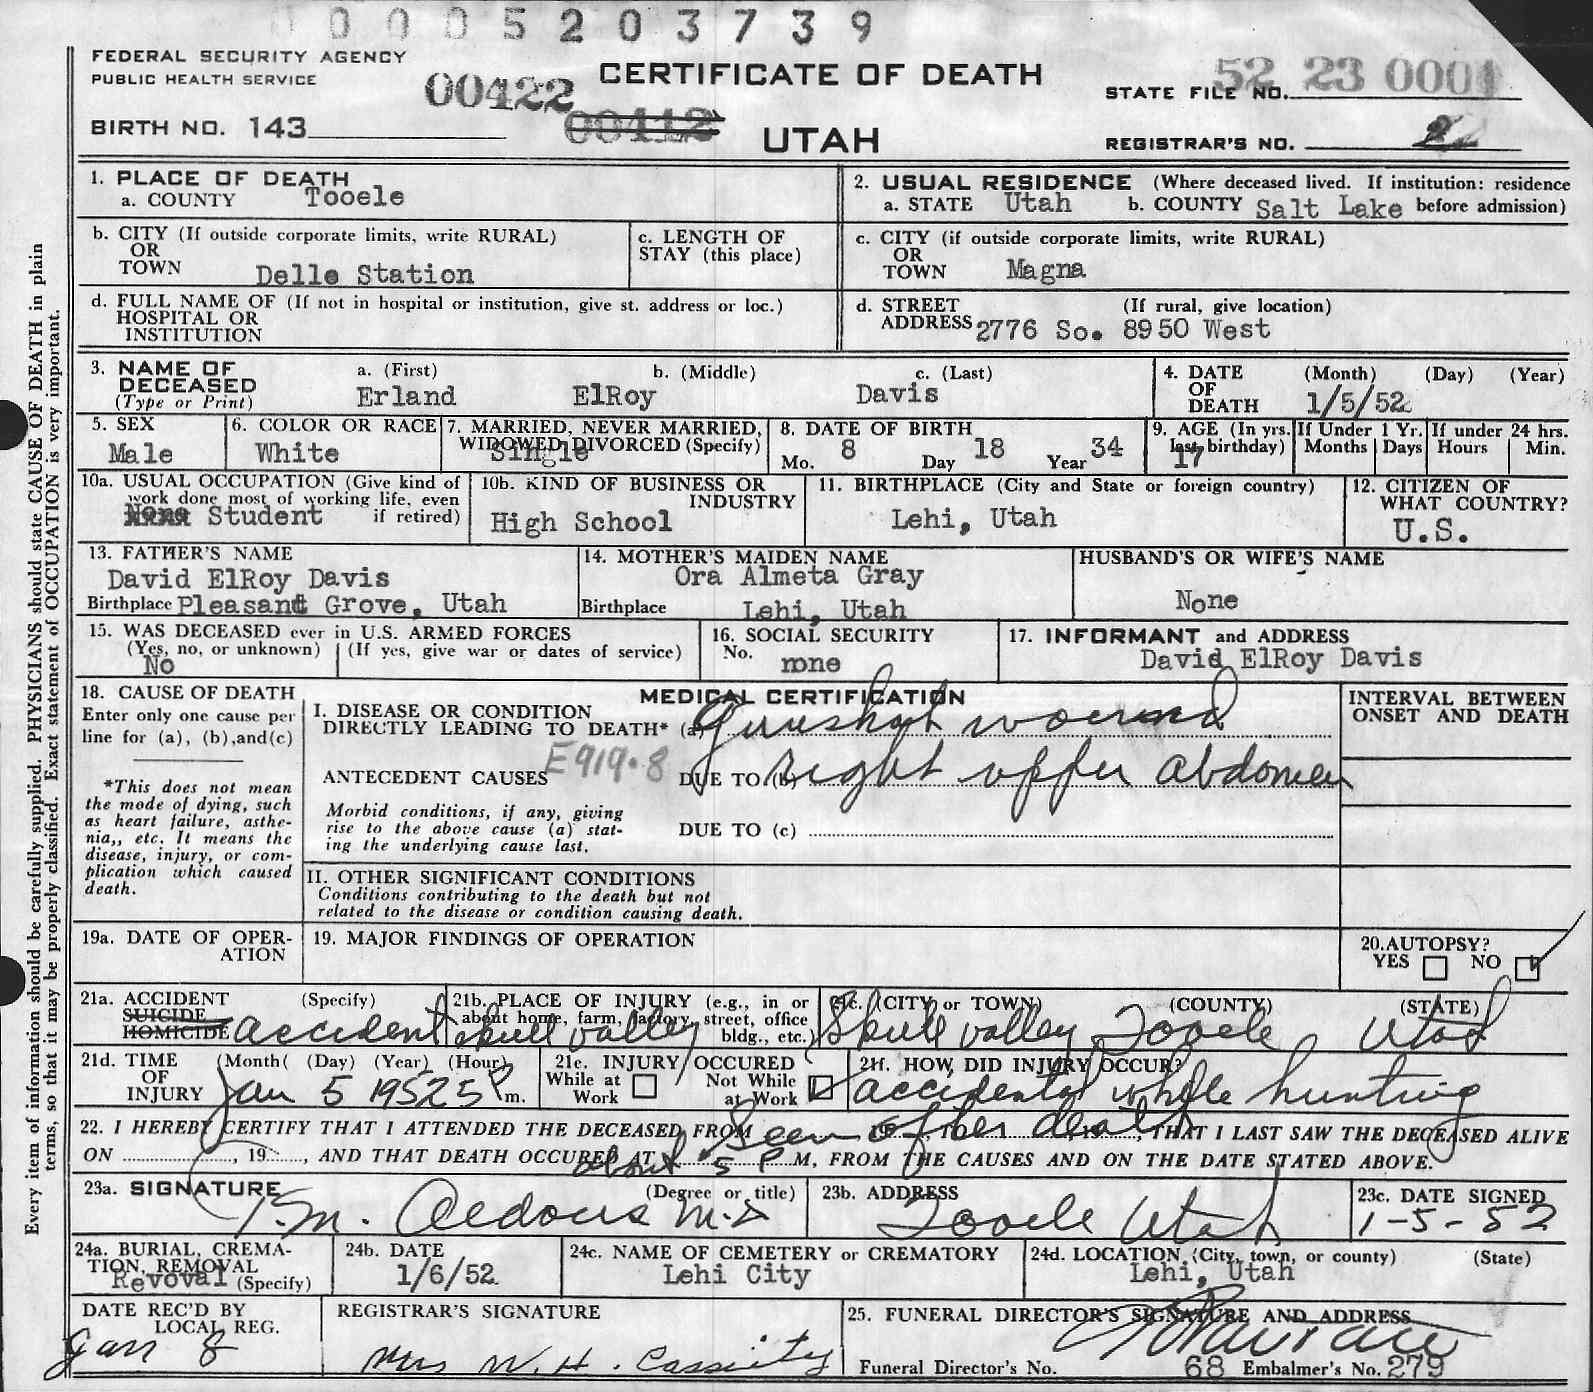 0 0 0 5 2 0 3 7 3 9
FEDERAL SECURITY AGENCY
PUBLIC HEALTH SERVICE
00422
CERTIFICATE OF DEATH
52 23 0001
STATE FILE NO.
BIRTH NO. 143
00412
UTAH
REGISTRAR'S NO.
1. PLACE OF DEATH
a. COUNTY Tooele
2. USUAL RESIDENCE (Where deceased lived. If institution: residence
a. STATE Utah b. COUNTY Salt Lake before admission)
b. CITY (If outside corporate limits, write RURAL)
OR
TOWN Delle Station
c. LENGTH OF
STAY (this place)
c. CITY (if outside corporate limits, write RURAL)
OR
TOWN Magna
d. FULL NAME OF (If not in hospital or institution, give st. address or loc.)
HOSPITAL OR
INSTITUTION
d. STREET (If rural, give location)
ADDRESS 2776 So. 8950 West
3. NAME OF
DECEASED
(Type or Print)
a. (First) b. (Middle) c. (Last)
Erland ElRoy Davis
4. DATE (Month) (Day) (Year)
OF
DEATH 1/5/52
5. SEX
Male
6. COLOR OR RACE
White
7. MARRIED, NEVER MARRIED,
WIDOWED, DIVORCED (Specify)
Single
8. DATE OF BIRTH
Mo. 8 Day 18 Year 34
9. AGE (In yrs.
last birthday)
17
If Under 1 Yr.
Months Days
If under 24 hrs.
Hours Min.
10a. USUAL OCCUPATION (Give kind of
work done most of working life, even
None Student if retired)
10b. KIND OF BUSINESS OR
INDUSTRY
High School
11. BIRTHPLACE (City and State or foreign country)
Lehi, Utah
12. CITIZEN OF
WHAT COUNTRY?
U.S.
13. FATHER'S NAME
David ElRoy Davis
Birthplace Pleasant Grove, Utah
14. MOTHER'S MAIDEN NAME
Ora Almeta Gray
Birthplace Lehi, Utah
HUSBAND'S OR WIFE'S NAME
None
15. WAS DECEASED ever in U.S. ARMED FORCES
(Yes, no, or unknown) (If yes, give war or dates of service)
No
16. SOCIAL SECURITY
No. none
17. INFORMANT and ADDRESS
David ElRoy Davis
18. CAUSE OF DEATH
Enter only one cause per
line for (a), (b),and(c)
*This does not mean
the mode of dying, such
as heart failure, asthe-
nia,, etc. It means the
disease, injury, or com-
plication which caused
death.
MEDICAL CERTIFICATION
I. DISEASE OR CONDITION
DIRECTLY LEADING TO DEATH* (a) Gunshot wound
ANTECEDENT CAUSES E919.8 DUE TO (b) right upper abdomen
Morbid conditions, if any, giving
rise to the above cause (a) stat-
ing the underlying cause last.
DUE TO (c)
II. OTHER SIGNIFICANT CONDITIONS
Conditions contributing to the death but not
related to the disease or condition causing death.
INTERVAL BETWEEN
ONSET AND DEATH
19a. DATE OF OPER-
ATION
19. MAJOR FINDINGS OF OPERATION
20. AUTOPSY?
YES NO
21a. ACCIDENT (Specify)
SUICIDE
HOMICIDE accident
21b. PLACE OF INJURY (e.g., in or
about home, farm, factory, street, office
bldg., etc.)
skull valley
21c. (CITY or TOWN) (COUNTY) (STATE)
Skull valley Tooele Utah
21d. TIME (Month( (Day) (Year) (Hour)
OF
INJURY Jan 5 1952 5 P m.
21e. INJURY OCCURED
While at Work Not While at Work
21f. HOW DID INJURY OCCUR?
accidental while hunting
22. I HEREBY CERTIFY THAT I ATTENDED THE DECEASED FROM Seen after death, THAT I LAST SAW THE DECEASED ALIVE
ON , 19 , AND THAT DEATH OCCURED AT about 5 P M, FROM THE CAUSES AND ON THE DATE STATED ABOVE.
23a. SIGNATURE (Degree or title)
M.D
23b. ADDRESS
Tooele Utah
23c. DATE SIGNED
1-5-52
24a. BURIAL, CREMA-
TION, REMOVAL
Revoval (Specify)
24b. DATE
1/6/52
24c. NAME OF CEMETERY or CREMATORY
Lehi City
24d. LOCATION (City, town, or county) (State)
Lehi, Utah
DATE REC'D BY
LOCAL REG.
Jan 8
REGISTRAR'S SIGNATURE
Mrs W. H. Cassity
25. FUNERAL DIRECTOR'S SIGNATURE AND ADDRESS
Funeral Director's No. 68 Embalmer's No. 279
Every item of information should be carefully supplied. PHYSICIANS should state CAUSE OF DEATH in plain
terms, so that it may be properly classified. Exact statement of OCCUPATION is very important.